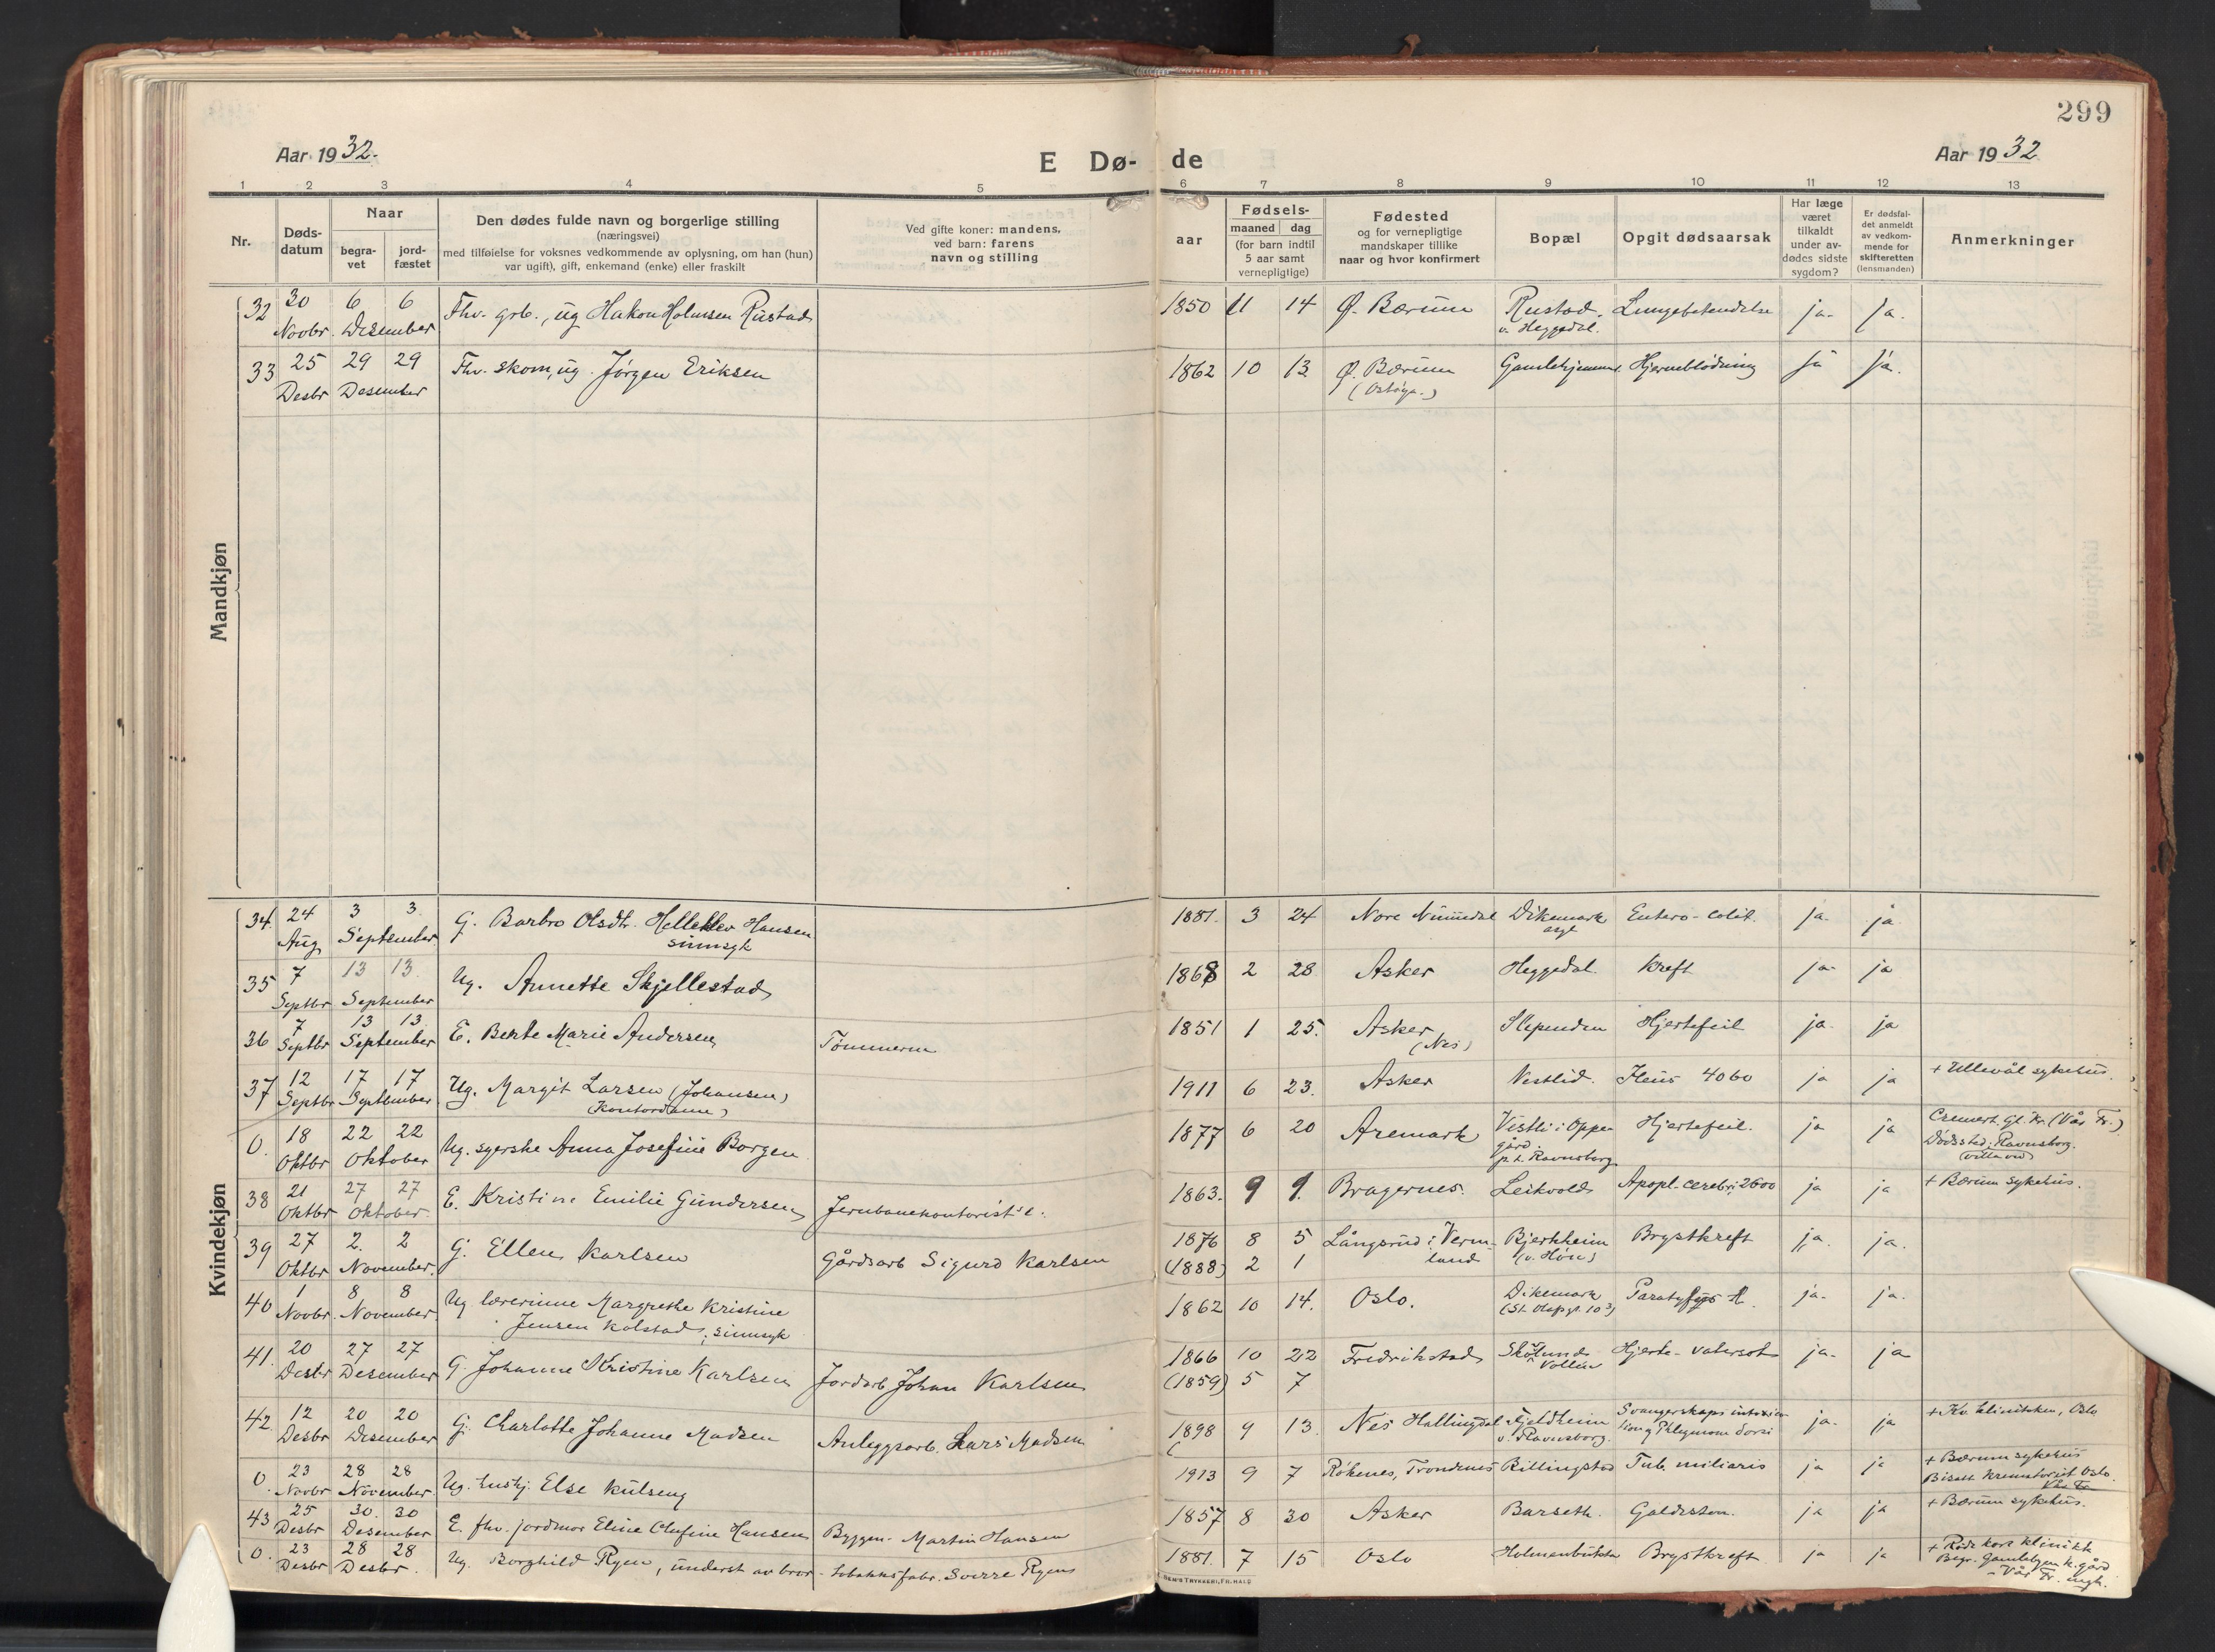 299
Aar 1932.
E Dø-
de
Aar 1932
1 2 3 4 5 6 7 8 9 10 11 12 13
Nr.
Døds-
datum
Naar
begra-
vet
jord-
fæstet
Den dødes fulde navn og borgerlige stilling
(næringsvei)
med tilføielse for voksnes vedkommende av oplysning, om han (hun)
var ugift), gift, enkemand (enke) eller fraskilt
Ved gifte koner: mandens,
ved barn: farens
navn og stilling
aar
Fødsels-
maaned dag
(for barn indtil
5 aar samt
vernepligtige)
Fødested
og for vernepligtige
mandskaper tillike
naar og hvor konfirmert
Bopæl
Opgit dødsaarsak
Har læge
været
tilkaldt
under av-
dødes sidste
sygdom?
Er dødsfal-
det anmeldt
av vedkom-
mende for
skifteretten
(lensmanden)
Anmerkninger
Mandkjøn
32 30 6 6 Fhv. grb., ug Hakon Holmsen Rustad 1850 11 14 Ø. Bærum Rustad. Lungebetendelse ja. ja.
Novbr. Desember v. Heggedal.
33 25 29 29 Fhv. skom, ug. Jørgen Eriksen 1862 10 13 Ø. Bærum Gamlehjemmet. Hjerneblødning ja ja.
Desbr Desember (Ostøya.)
Kvindekjøn
34 24 3 3. G. Barbro Olsdtr. Hansen 1881. 3 24 Nore Numedal Dikemark Entero-colit. ja. ja.
Aug September sinnsyk asyl
35 7 13 13. Ug. Annette Skjellestad 1868 2 28 Asker Heggedal. Kreft ja- ja
Septbr September
36 7 13 13. E. Berte Marie Andersen Tømmerm 1851 1 25. Asker Slependen Hjertefeil ja. ja
Septbr September (Nes)
37 12 17 17 Ug. Margit Larsen (Johansen) 1911 6 23. Asker Vestlid. Ileus 4060 ja ja + Ullevål sykehus.
Septbr September (Kontordame)
0. 18 22 22 Ug. syerske Anna Josefine Borgen 1877 6 20 Aremark Vestli i Oppe- Hjertefeil. ja ja Cremert. Gl. Kr. (Vår Fr.)
Oktbr Oktober gård. Dødssted: Ravnsborg.
p.t. Ravnsborg
38 21 27 27 E. Kristine Emilie Gundersen Jernbanekontorist 1863. 9 9. Bragernes. Leikvold Apopl. cerebri; 2600 ja ja + Bærum sykehus.
Oktbr Oktober
39 27 2. 2 G. Ellen Karlsen Gårdsarb Sigurd Karlsen 1876 8 5 Långsrud i Verm- Bjerkheim Brystkreft ja. ja.
Oktbr November. (1888) 2 1 land (v. Høn)
40 1 8 8 Ug lærerinne Margrethe Kristine 1862 10 14. Oslo. Dikemark Paratyfus A. ja- ja.
Novbr. November Jensen Kolstad, sinnsyk (St. Olafsgt. 10³)
41. 20 27 27 G. Johanne Kristine Karlsen Jordarb Johan Karlsen 1866 10 22 Fredrikstad Skølund Hjerte- vatersot ja- ja
Desbr Desember (1859) 5 7 Vollen
42. 12 20 20 G. Charlotte Johanne Madsen Anleggsarb. Lars Madsen 1898 9 13. Nes Hallingdal Fjeldheim Svangerskaps intoxica- ja- ja + Kv. klinikken, Oslo
Desbr Desember v. Ravnsborg. sion og Phlegmone dorsi
0. 23 28 28 Ug. hushj. Else Kulseng 1913 9 7 Røkenes, Trondenes Billingstad Tub. miliaris ja ja + Bærum sykehus
Novbr November. Bisatt Krematoriet Oslo.
43 25 30. 30 E. fhv. jordmor Eline Olufine Hansen Byggm. Martin Hansen 1857 8 30 Asker Barseth. Galdesten. ja ja + Bærum sykehus.
Desbr Desember
0. 23 28 28 Ug. Borghild Ryen, underst av bror - tobakksfabr. Sverre Ryen 1881. 7 15 Oslo Holmenbukta Brystkreft ja ja + Røde kors klinikk
Desbr Desbr. Begr. Gamlebyen k.gård
- Vår Fr. mgh.